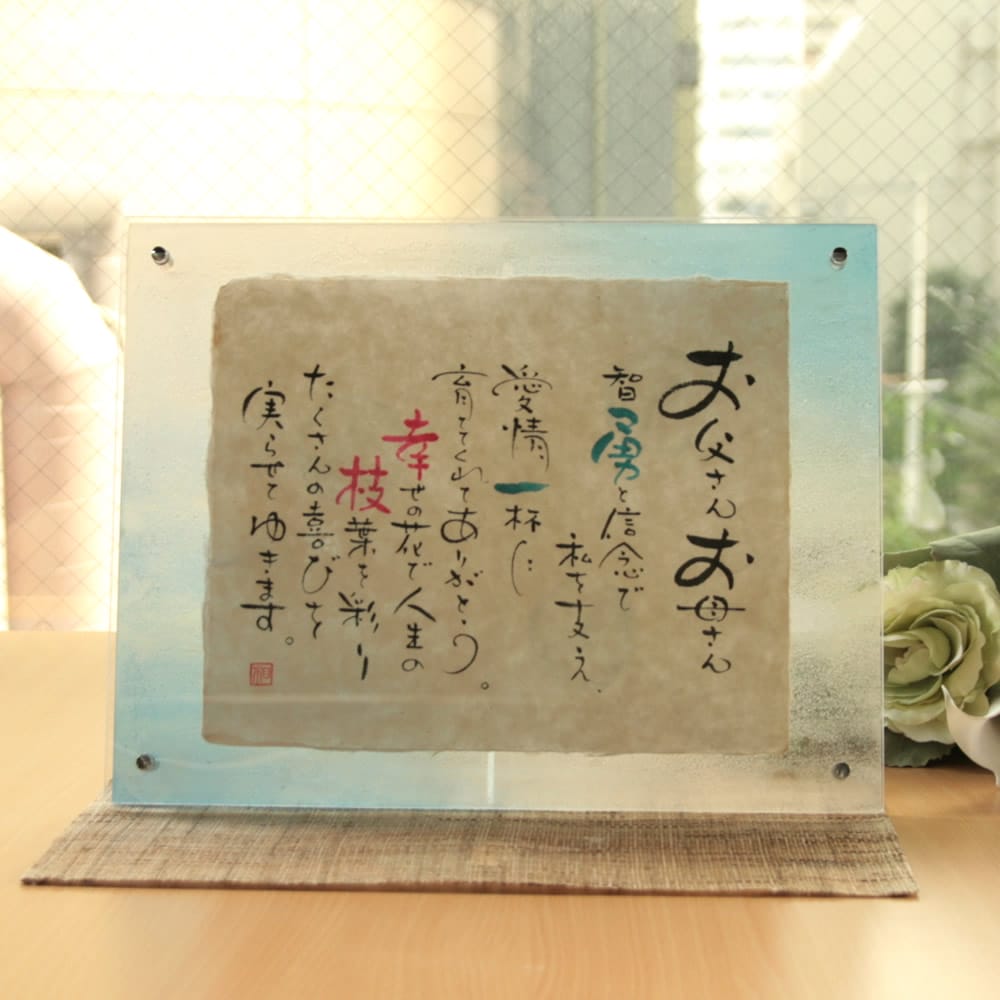 お父さんお母さん
智勇と信念で
私を支え、
愛情一杯に
育ててくれてありがとう。
幸せの花で人生の
枝葉を彩り
たくさんの喜びを
実らせてゆきます。